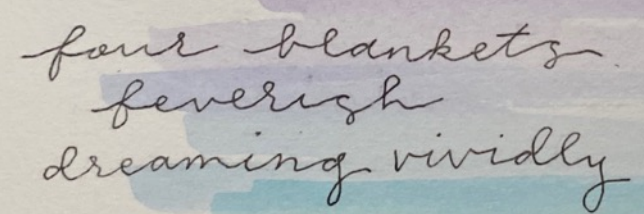 four blankets
feverish
dreaming vividly